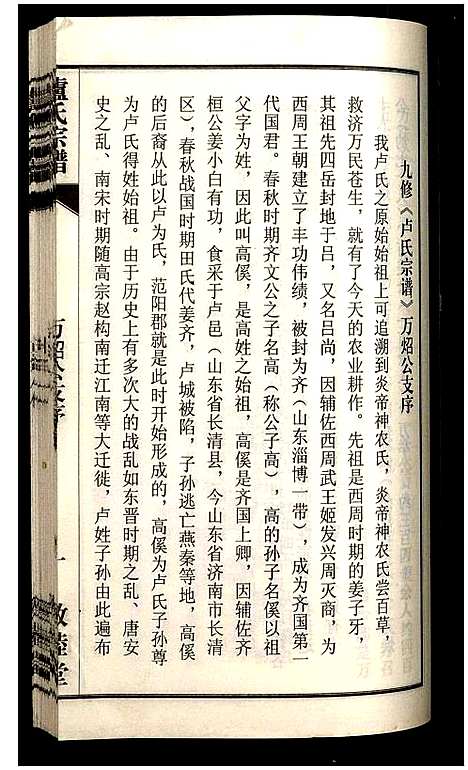 九修《卢氏宗谱》万炤公支序
我卢氏之原始始祖上可追溯到炎帝神农氏，炎帝神农氏尝百草，
救济万民苍生，就有了今天的农业耕作。先祖是西周时期的姜子牙，
其祖先四岳封地于吕，又名吕尚，因辅佐西周武王姬发兴周灭商，为
西周王朝建立了丰功伟绩，被封为齐（山东淄博一带），成为齐国第一
代国君。春秋时期齐文公之子名高（称公子高），高的孙子名傒以祖
父字为姓，因此叫高傒，是高姓之始祖，高傒是齐国上卿，因辅佐齐
桓公姜小白有功，食采于卢邑（山东省长清县，今山东省济南市长清
区），春秋战国时期田氏代姜齐，卢城被陷，子孙逃亡燕秦等地，高傒
的后裔从此以卢为氏，范阳郡就是此时开始形成的，高傒为卢氏子孙尊
为卢氏得姓始祖。由于历史上有多次大的战乱如东晋时期之乱、唐安
史之乱、南宋时期随高宗赵构南迁江南等大迁徙，卢姓子孙由此遍布
盧氏宗譜
万炤公支序
一
敦睦堂